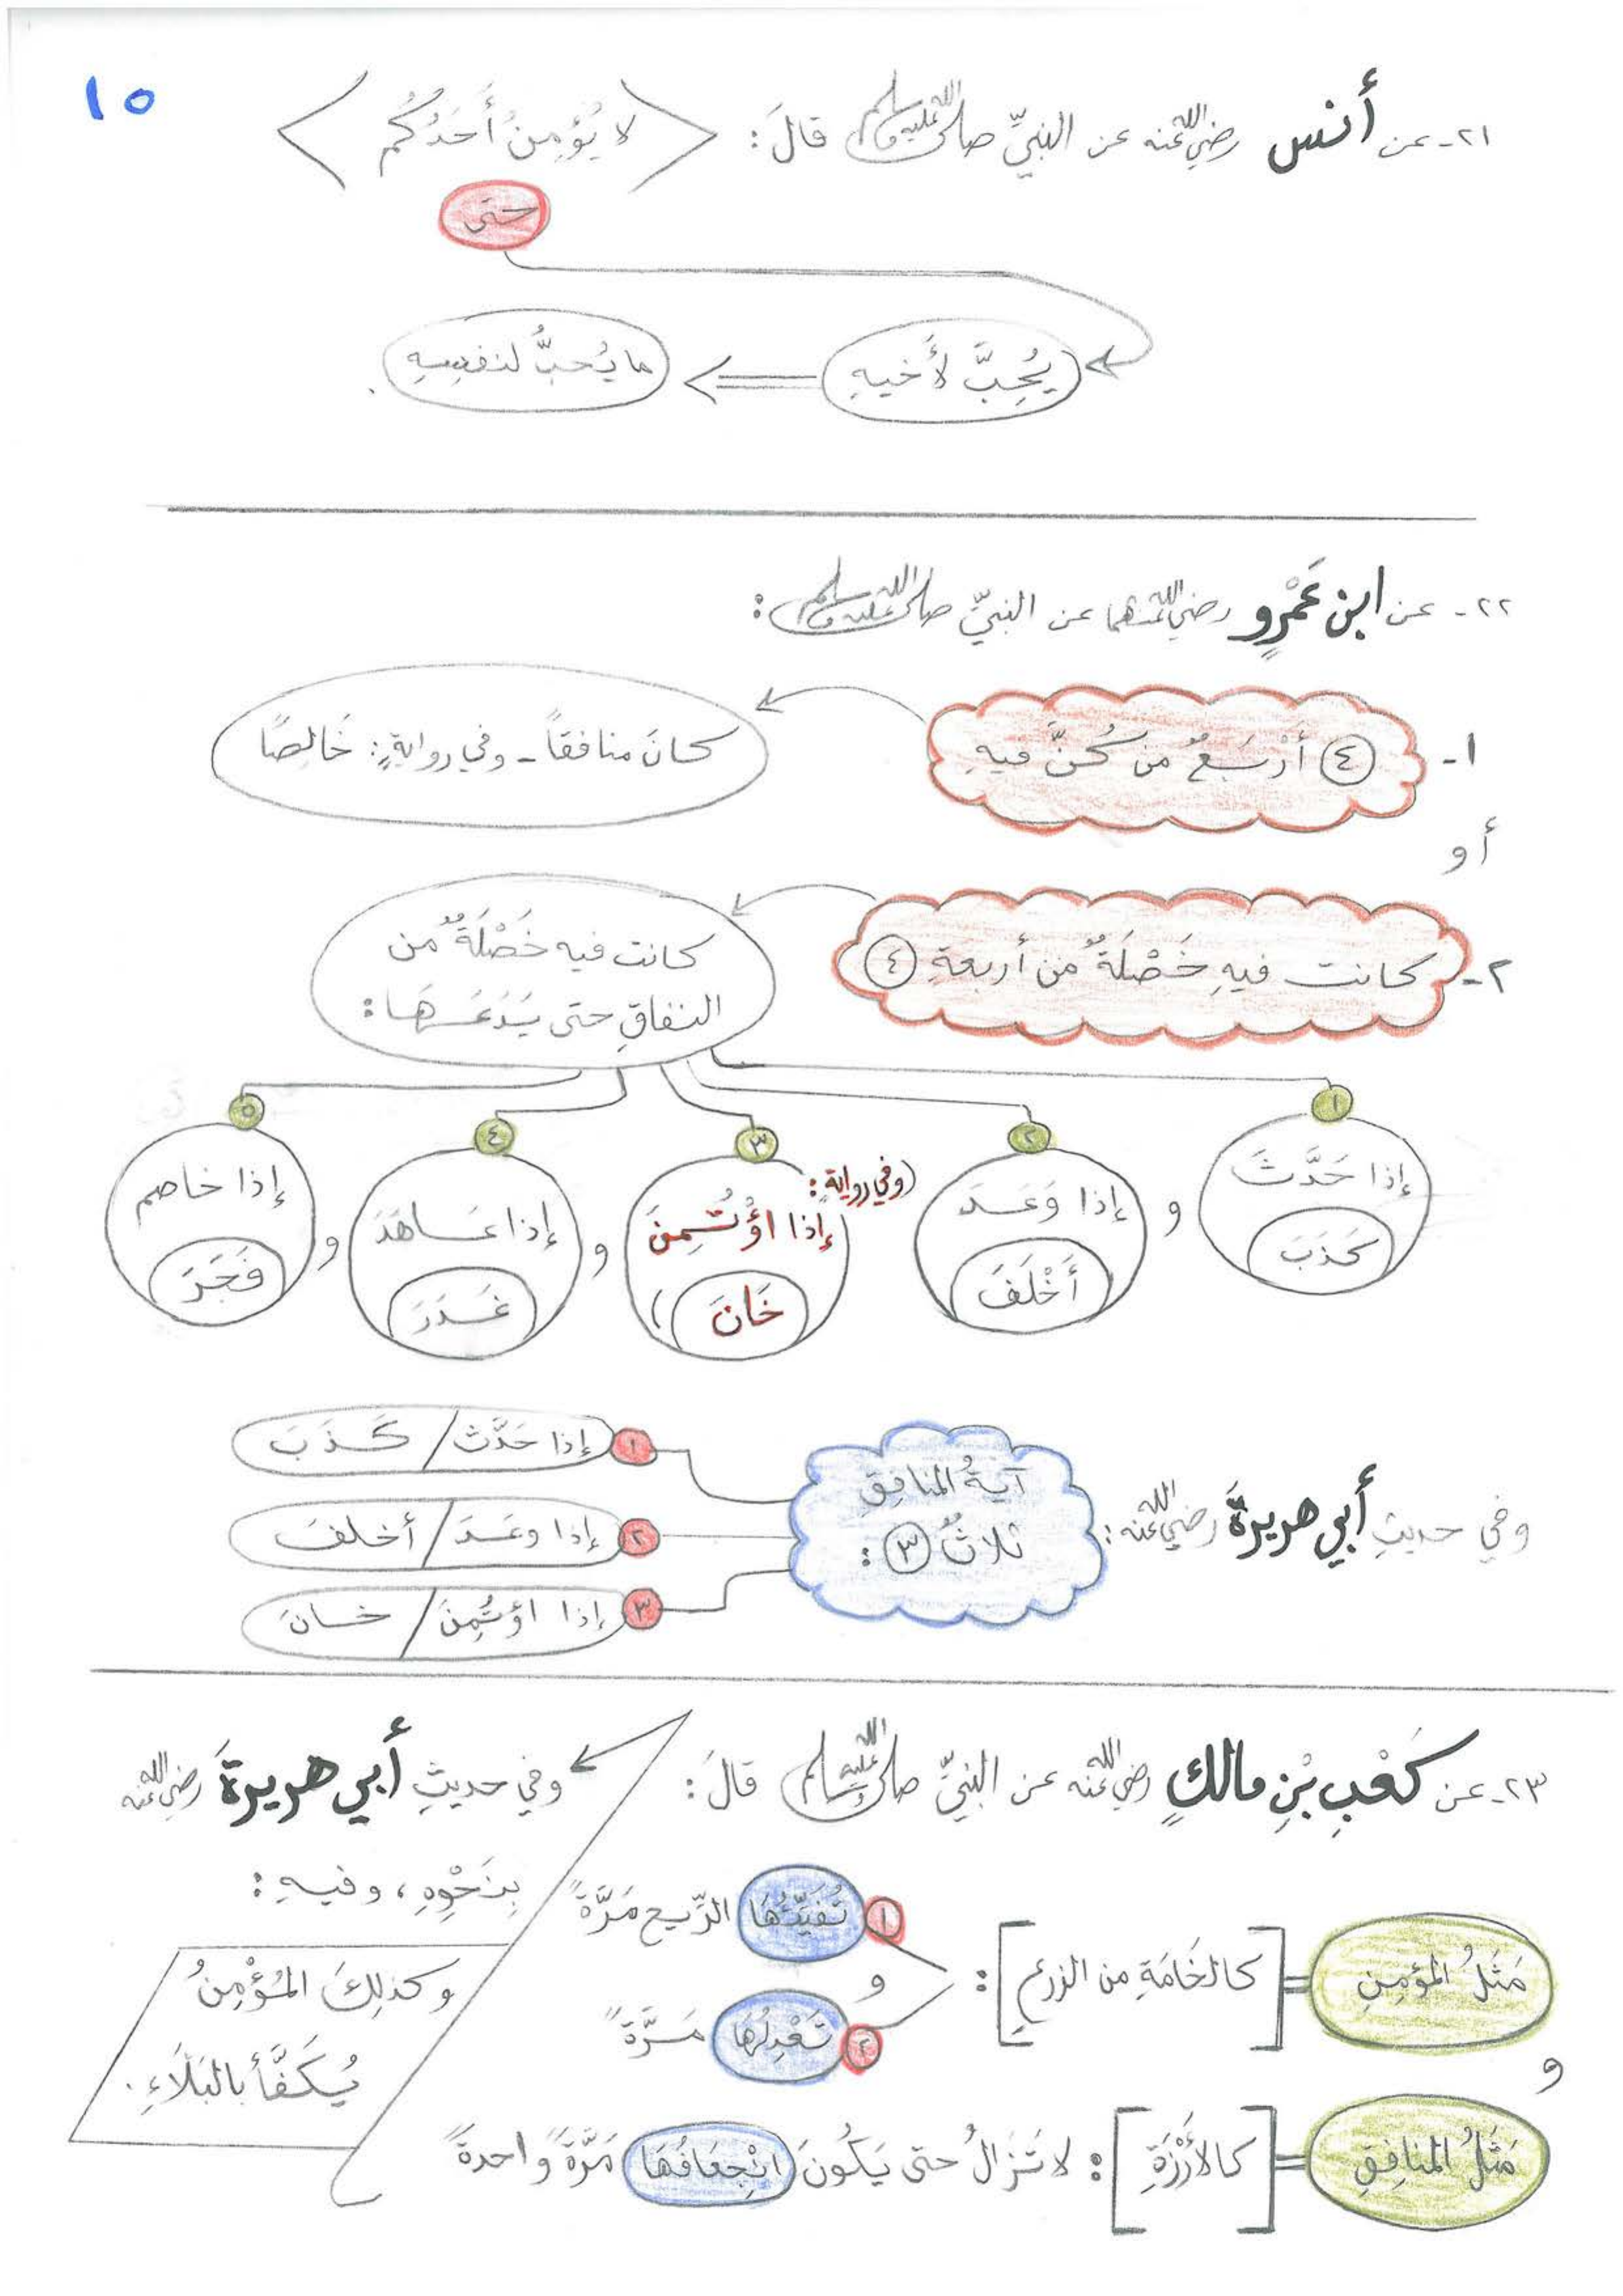 ١٥
٢١- عن أنس رضي الله عنه عن النبيِّ صلى الله عليه وسلم قالَ: لا يُؤمِنُ أَحَدُكُم
حتى
يُحِبَّ لأَخيهِ
ما يُحبُّ لنفسِهِ.
٢٢- عن ابن عَمْرٍو رضي الله عنهما عن النبيِّ صلى الله عليه وسلم:
١- ④ أرْبَعٌ من كُنَّ فيهِ
كانَ منافقاً - وفي روايةٍ: خَالِصًا
أو
٢- كانت فيهِ خَصْلَةٌ من أربعةٍ ④
كانت فيه خَصْلَةٌ من
النفاقِ حتى يَدَعَهَا:
١
إذا حَدَّثَ
كَذَبَ
و
٢
إذا وَعَدَ
أَخْلَفَ
٣
(وفي روايةٍ:
إذا اؤْتُمِنَ
خَانَ)
و
٤
إذا عَاهَدَ
غَدَرَ
و
٥
إذا خاصم
فَجَرَ
وفي حديثِ أبي هريرةَ رضي الله عنه:
آيةُ المنافِقِ
ثلاثٌ ③:
١ إذا حَدَّث / كَذَبَ
٢ إذا وعَدَ / أخلفَ
٣ إذا اؤتُمِنَ / خانَ
٢٣- عن كَعْبِ بْنِ مالكٍ رضي الله عنه عن النبيِّ صلى الله عليه وسلم قالَ:
مَثَلُ المؤمِنِ = [كالخَامَةِ من الزرعِ]:
١ تُفَيِّئُهَا الرِّيح مَرَّةً
و
٢ تَعْدِلُهَا مَرَّةً
و
مَثَلُ المنافِقِ = [كالأَرْزَةِ]: لا تَزَالُ حتى يَكُونَ انْجِعَافُهَا مَرَّةً واحدةً
وفي حديثِ أبي هريرةَ رضي الله عنه
بِنَحْوِهِ، وفيهِ:
وكذلِكَ المُؤْمِنُ
يُكَفَّأُ بالبَلَاءِ.